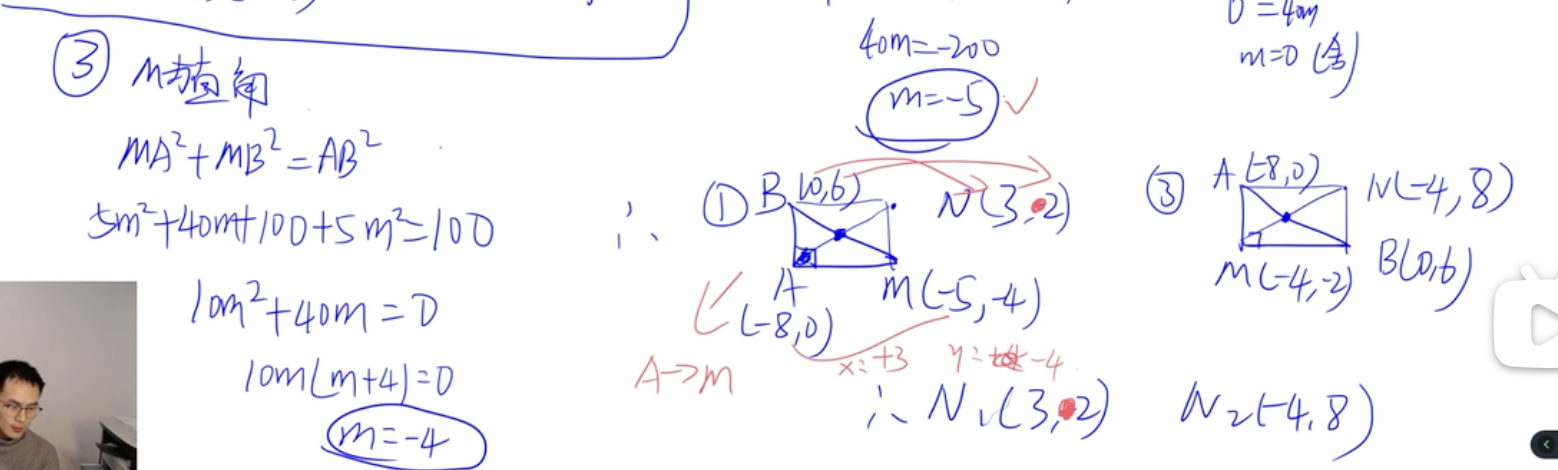 ③ M为直角
MA²+MB²=AB²
5m²+40m+100+5m²=100
10m²+40m=0
10m(m+4)=0
m=-4
40m=-200
m=-5 ✓
0=40m
m=0 (舍)
∴ ① B(0,6) N(3,2)
A
(-8,0)
M(-5,-4)
A→m
x:+3 y: -4
∴ N₁(3,2) N₂(-4,8)
③ A(-8,0) N(-4,8)
M(-4,-2) B(0,6)